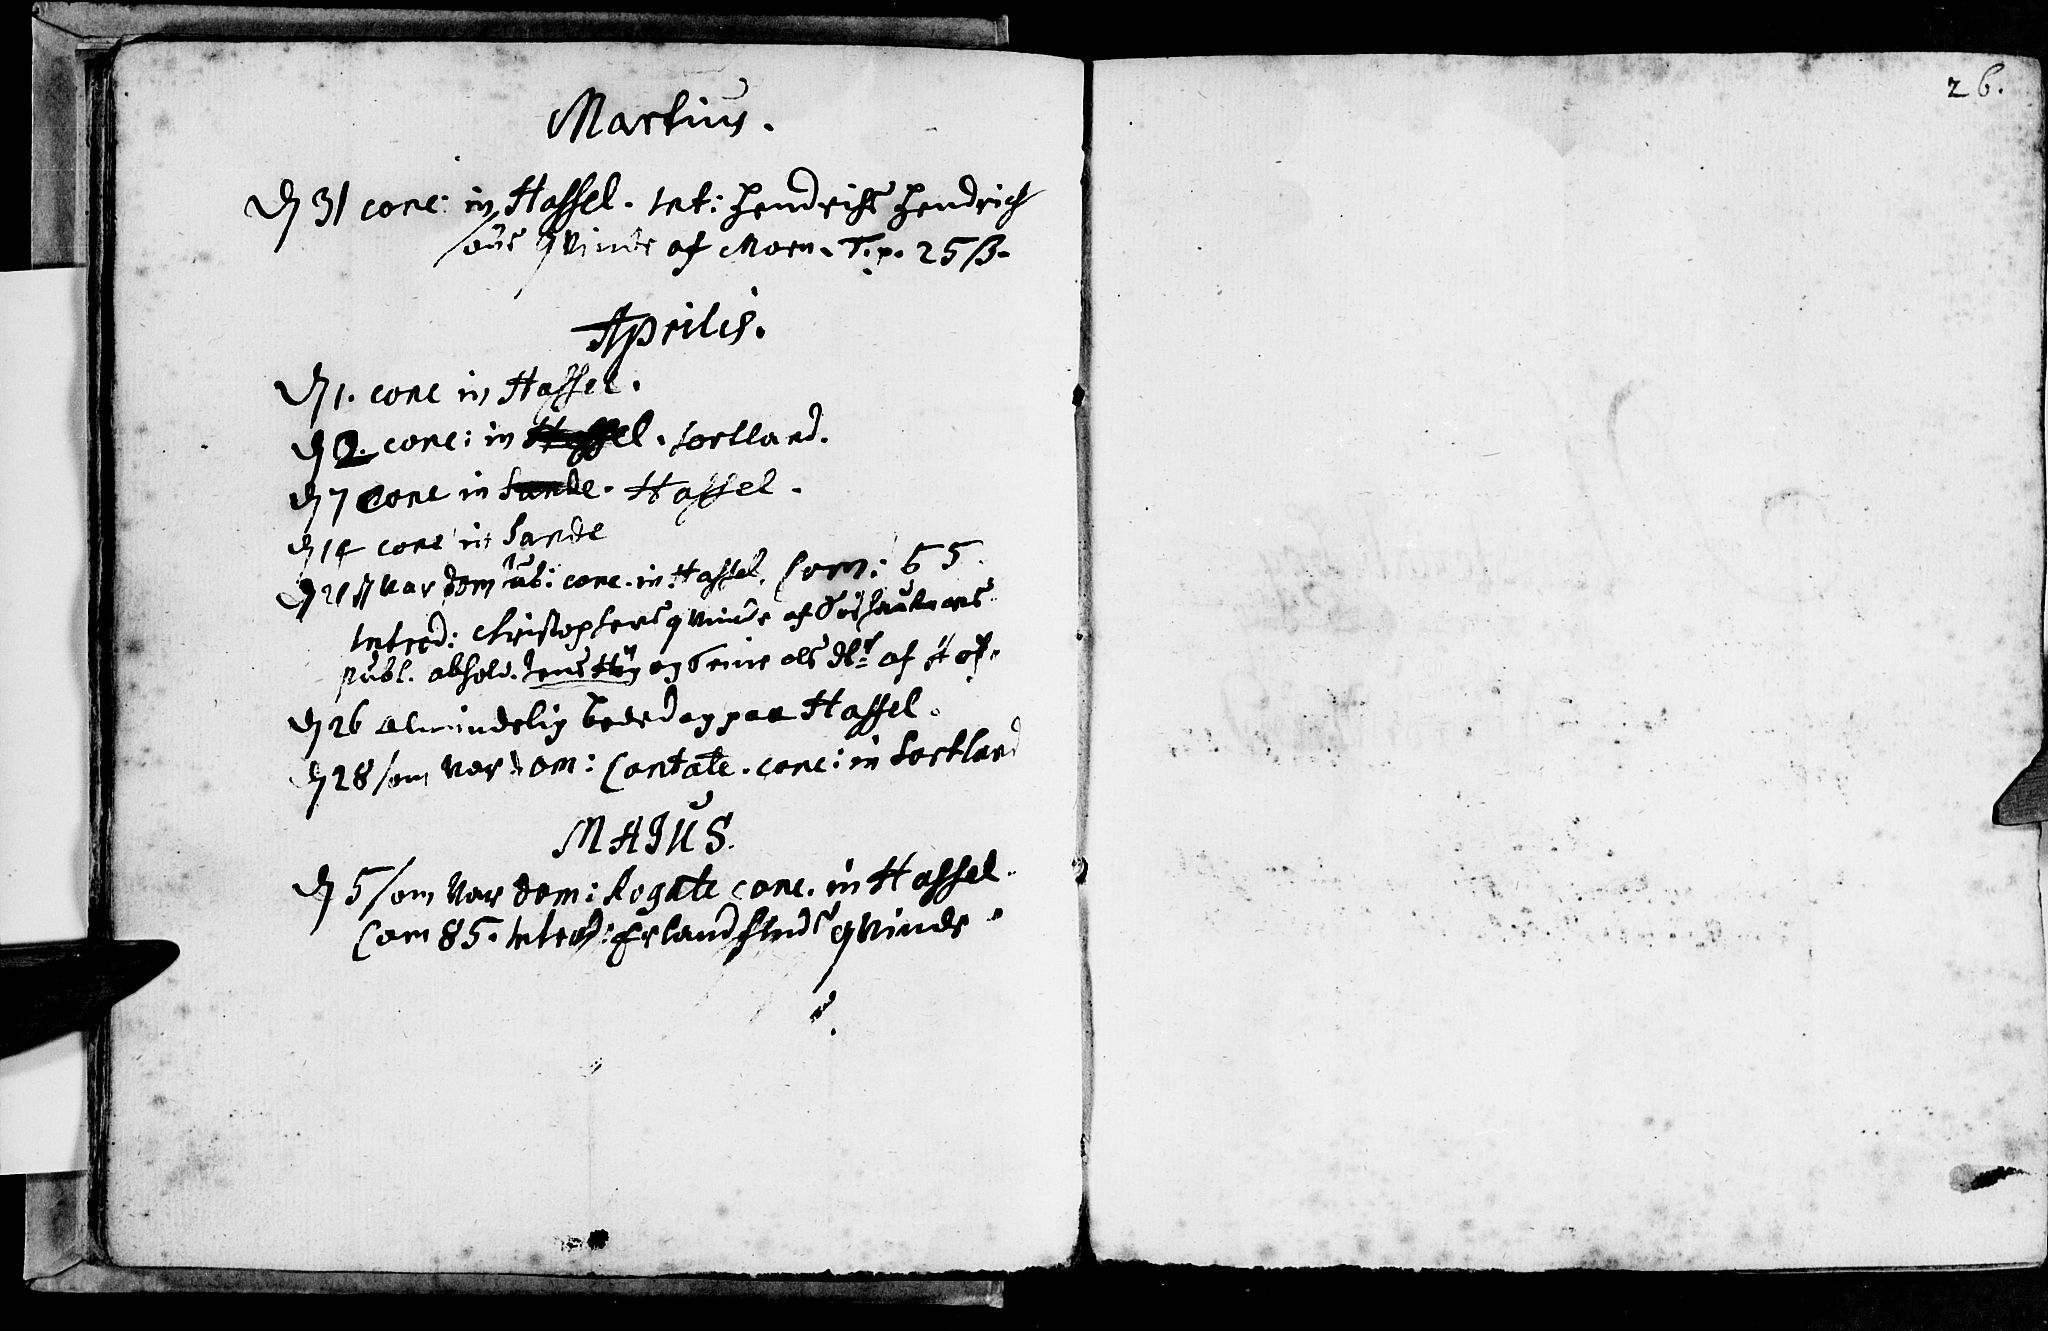 Martius.
d 31 conc: in Hassel. Int: Hendrichs Hendrich
søns qvinde af Moen. T.p. 25 ß.
Aprilis.
d 1. conc in Hassel.
d 2. conc: in Hassel. Sortland.
d 7 conc in Sande. Hassel.
d 14 conc in Sande
d 21 var dom Jub: conc. in Hassel. Com: 65.
Introd: Christophers qvinde af
publ. absolv. Jens og af
d 26 almindelig Bededag paa Hassel.
d 28 som var dom: Cantate. conc: in Sortland
MAJUS.
d 5 som var dom: Rogate conc. in Hassel.
Com 85. Introd: Erland qvinde.
26.